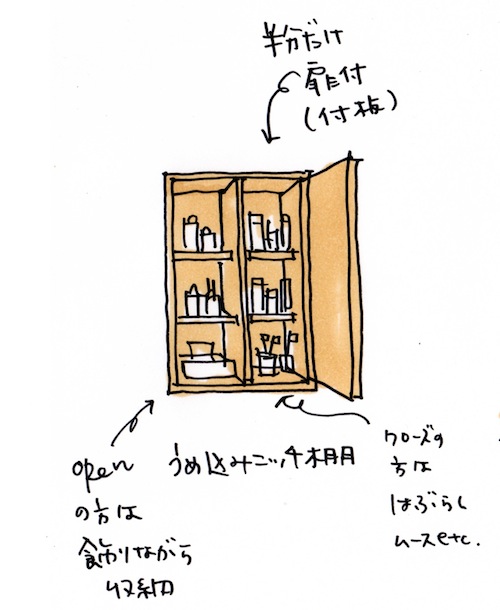 半分だけ
扉付
(付板)
open
の方は
飾りながら
収納
うめ込みニッチ棚
クローズの
方は
はぶらし
ムースetc.